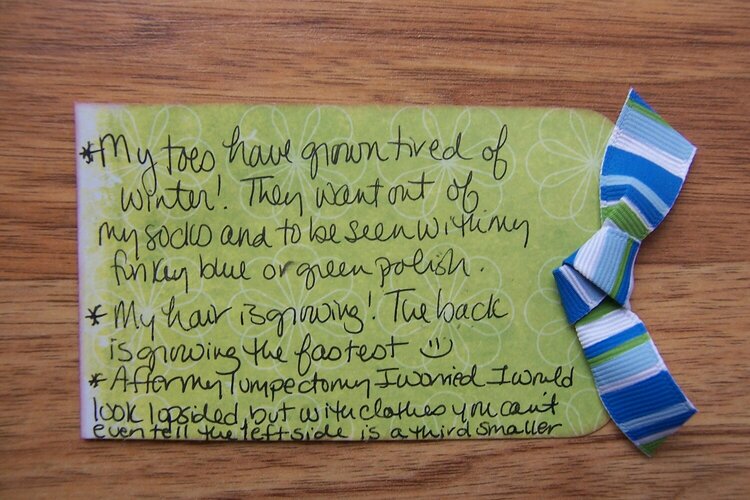 *My toes have grown tired of
winter! They want out of
my socks and to be seen with my
funkey blue or green polish.
*My hair is growing! The back
is growing the fastest :)
*After my lumpectomy I worried I would
look lopsided but with clothes you can't
even tell the left side is a third smaller